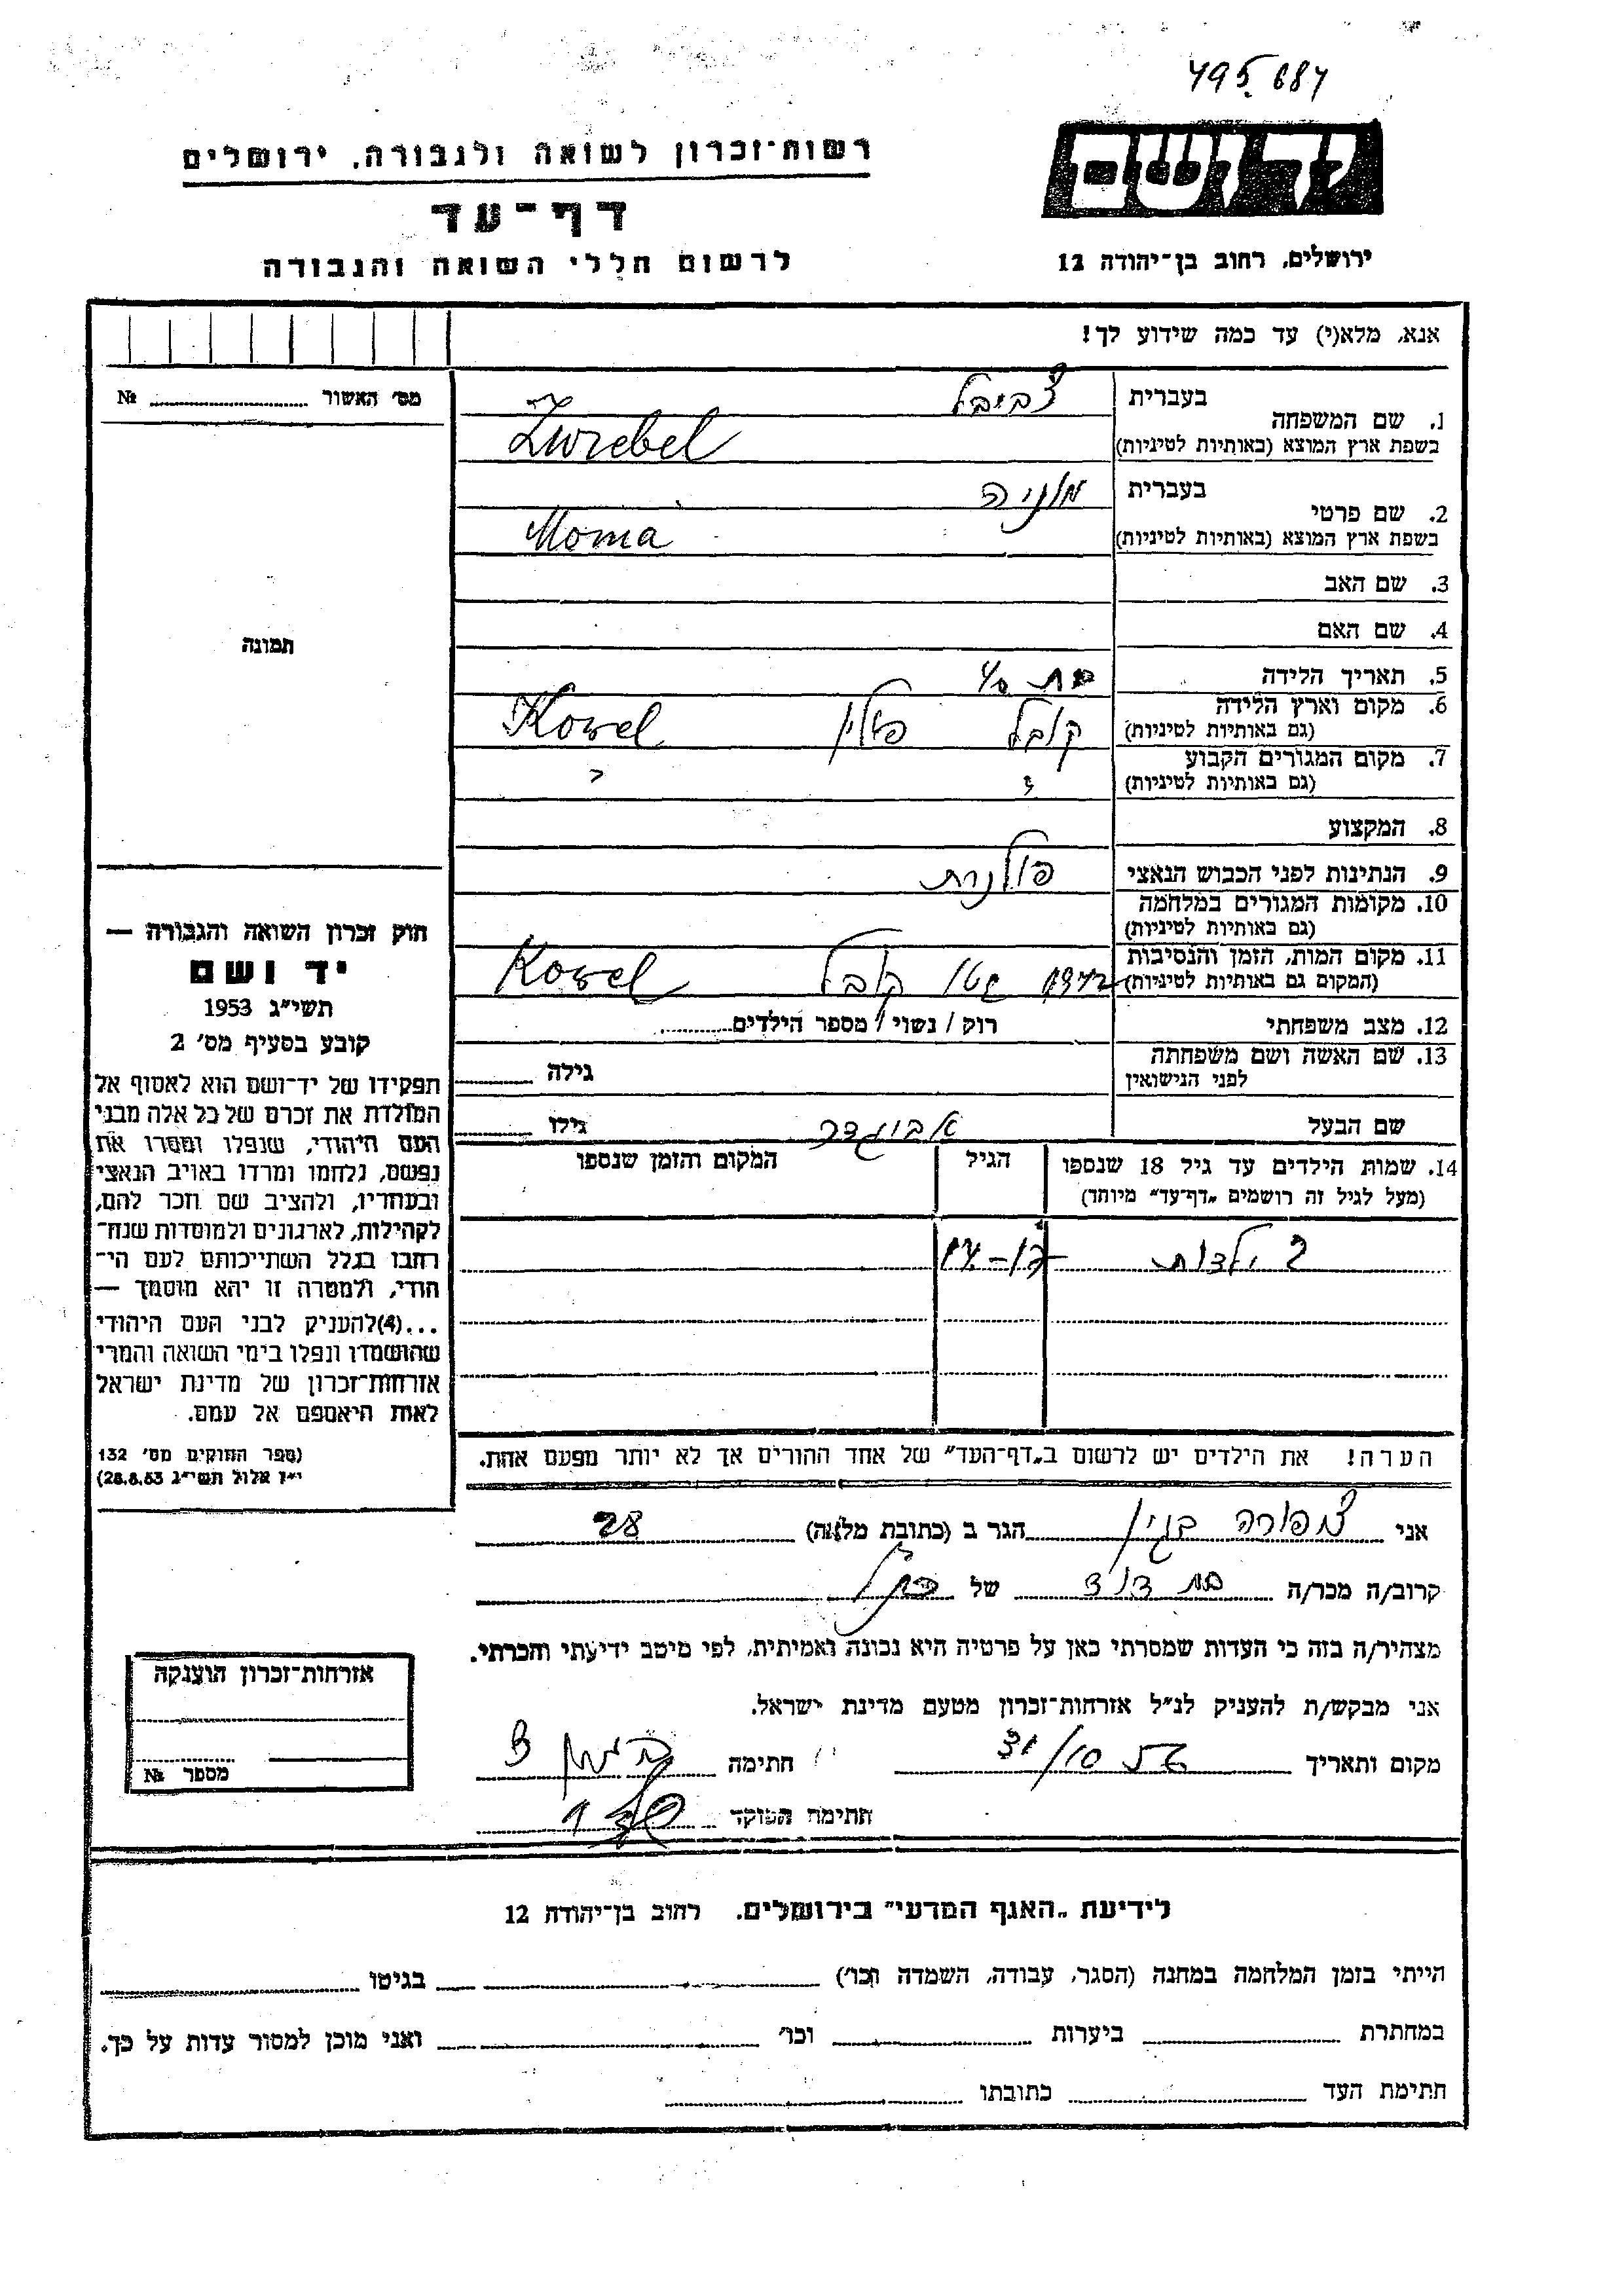 495.684
רשות־זכרון לשואה ולגבורה, ירושלים
דף־עד
לרשום חללי השואה והגבורה
יד ושם
ירושלים, רחוב בן־יהודה 12
אנא, מלא(י) עד כמה שידוע לך!
מס' האשור № 
1. שם המשפחה
בעברית
בשפת ארץ המוצא (באותיות לטיניות)
2. שם פרטי
בעברית מוניה
בשפת ארץ המוצא (באותיות לטיניות) Monia
3. שם האב
4. שם האם
5. תאריך הלידה בת 40
6. מקום וארץ הלידה קובל פולין Kowel
(גם באותיות לטיניות)
7. מקום המגורים הקבוע ? ?
(גם באותיות לטיניות)
8. המקצוע
9. הנתינות לפני הכבוש הנאצי פולנית
10. מקומות המגורים במלחמה
(גם באותיות לטיניות)
11. מקום המות, הזמן והנסיבות
(המקום גם באותיות לטיניות) גטו קובל Kowel
12. מצב משפחתי רוק / נשוי / מספר הילדים
13. שם האשה ושם משפחתה
לפני הנישואין גילה
שם הבעל גילו
14. שמות הילדים עד גיל 18 שנספו
(מעל לגיל זה רושמים „דף־עד” מיוחד)
הגיל
המקום והזמן שנספו
2 ילדות
הערה! את הילדים יש לרשום ב„דף־העד” של אחד ההורים אך לא יותר מפעם אחת.
תמונה
חוק זכרון השואה והגבורה —
יד ושם
תשי״ג 1953
קובע בסעיף מס' 2
תפקידו של יד־ושם הוא לאסוף אל
המולדת את זכרם של כל אלה מבני
העם היהודי, שנפלו ומסרו את
נפשם, נלחמו ומרדו באויב הנאצי
ובעוזריו, ולהציב שם וזכר להם,
לקהילות, לארגונים ולמוסדות שנח־
רבו בגלל השתייכותם לעם הי־
הודי, ולמטרה זו יהא מוסמך —
...(4)להעניק לבני העם היהודי
שהושמדו ונפלו בימי השואה והמרי
אזרחות־זכרון של מדינת ישראל
לאות היאספם אל עמם.
(ספר החוקים מס' 132
י״ז אלול תשי״ג 28.8.53)
אני צפורה הגר ב (כתובת מלאה) 28
קרוב/ה מכר/ה של
מצהיר/ה בזה כי העדות שמסרתי כאן על פרטיה היא נכונה ואמיתית, לפי מיטב ידיעתי והכרתי.
אני מבקש/ת להעניק לנ״ל אזרחות־זכרון מטעם מדינת ישראל.
מקום ותאריך חתימה
חתימת הפוקד
אזרחות־זכרון הוענקה
מספר №
לידיעת „האגף המדעי” בירושלים, רחוב בן־יהודה 12
הייתי בזמן המלחמה במחנה (הסגר, עבודה, השמדה וכו') בגיטו
במחתרת ביערות וכו' ואני מוכן למסור עדות על כך.
חתימת העד כתובתו